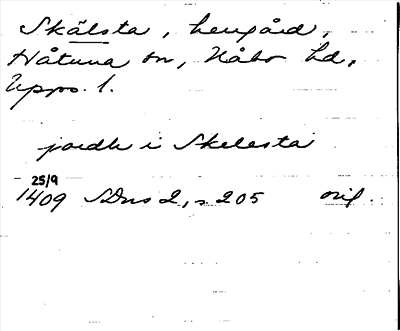 Skälsta, herrgård,
Håtuna sn, Håbo hd,
Upps. l.
jordh i Skelesta
25/9
1409 SDns 2, s 205 orig.